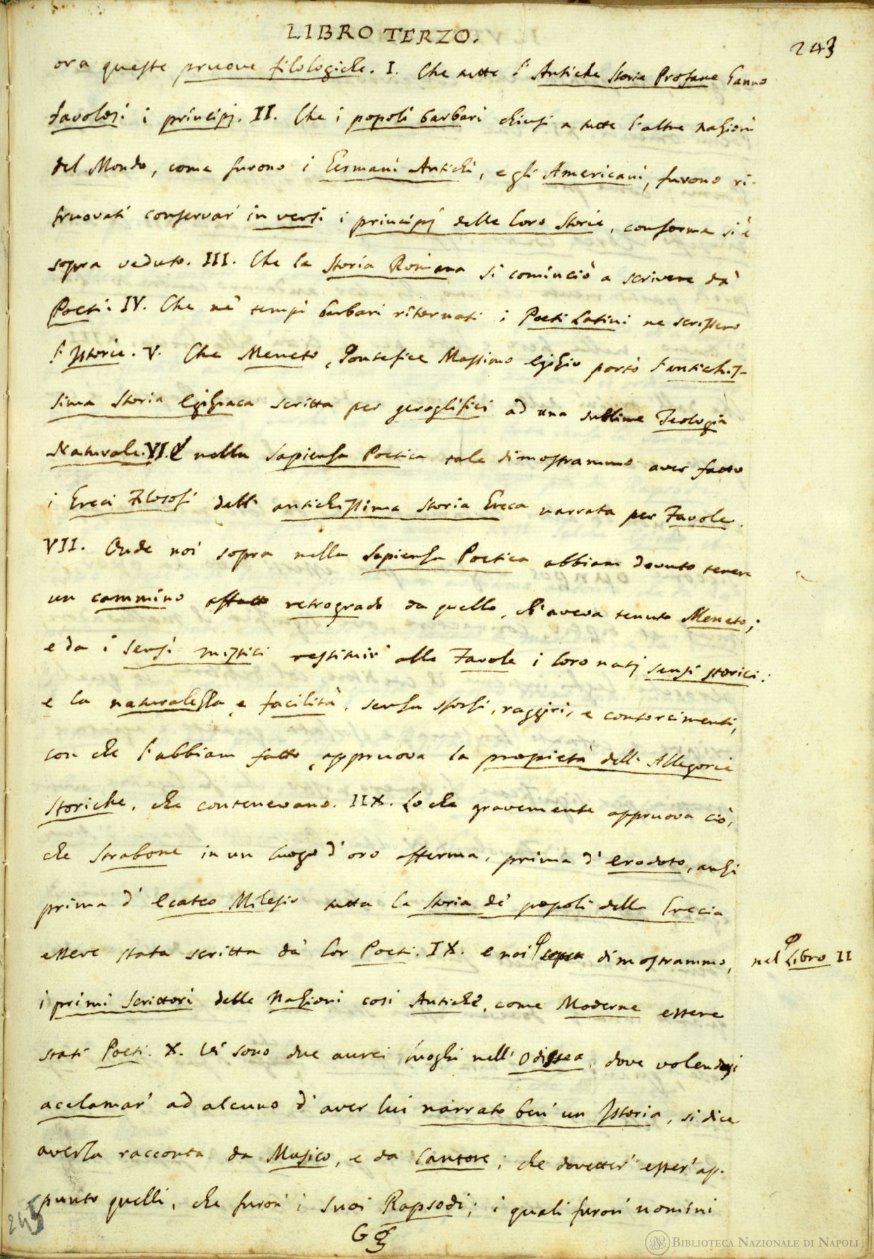 LIBRO TERZO.
243
ora queste pruove filologiche. I. Che tutte l'Antiche Storie Profane hanno
favolosi i principj. II. Che i popoli barbari chiusi a tutte l'altre nazioni
del Mondo, come furono i Germani Antichi, e gli Americani, furono ri-
truovati conservar' in versi i principj delle loro Storie, conforme si è
sopra veduto. III. Che la Storia Romana si cominciò a scrivere da'
Poeti. IV. Che ne' tempi barbari ritornati i Poeti Latini ne scrissero
l'Istorie. V. Che Maneto, Pontefice Massimo Egizio portò l'antichis-
sima Storia Egiziaca scritta per geroglifici ad una sublime Teologia
Naturale. VI. E nella Sapienza Poetica tale dimostrammo aver fatto
i Greci Filosofi dell' antichissima Storia Greca narrata per Favole.
VII. Onde noi sopra nella Sapienza Poetica abbiam dovuto tenere
un cammino affatto retrogrado da quello, ch'aveva tenuto Maneto;
e da i sensi mistici restituir' alle Favole i loro natj sensi storici:
e la naturalezza, e facilità, senza sforzi, raggiri, e contorcimenti,
con che l'abbiam fatto, appruova la propietà dell' Allegorie
Storiche, che contenevano. IIX. Lo che gravemente appruova ciò,
che Strabone in un luogo d'oro afferma, prima d' Erodoto, anzi
prima d' Ecateo Milesio tutta la Storia de' popoli della Grecia
essere stata scritta da' lor Poeti. IX. E noi dimostrammo,
nel Libro II
i primi Scrittori delle Nazioni così Antiche, come Moderne essere
stati Poeti. X. Vi sono due aurei luoghi nell' Odissea, dove volendosi
acclamar' ad alcuno d'aver lui narrato ben' un' Istoria, si dice
averla racconta da Musico, e da Cantore; che dovetter' esser' ap-
punto quelli, che furon' i suoi Rapsodi; i quali furon' uomini
245
BIBLIOTECA NAZIONALE DI NAPOLI